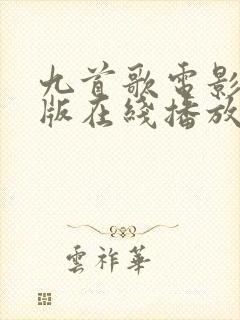 九首歌電影
版在綫播放
雲祚華